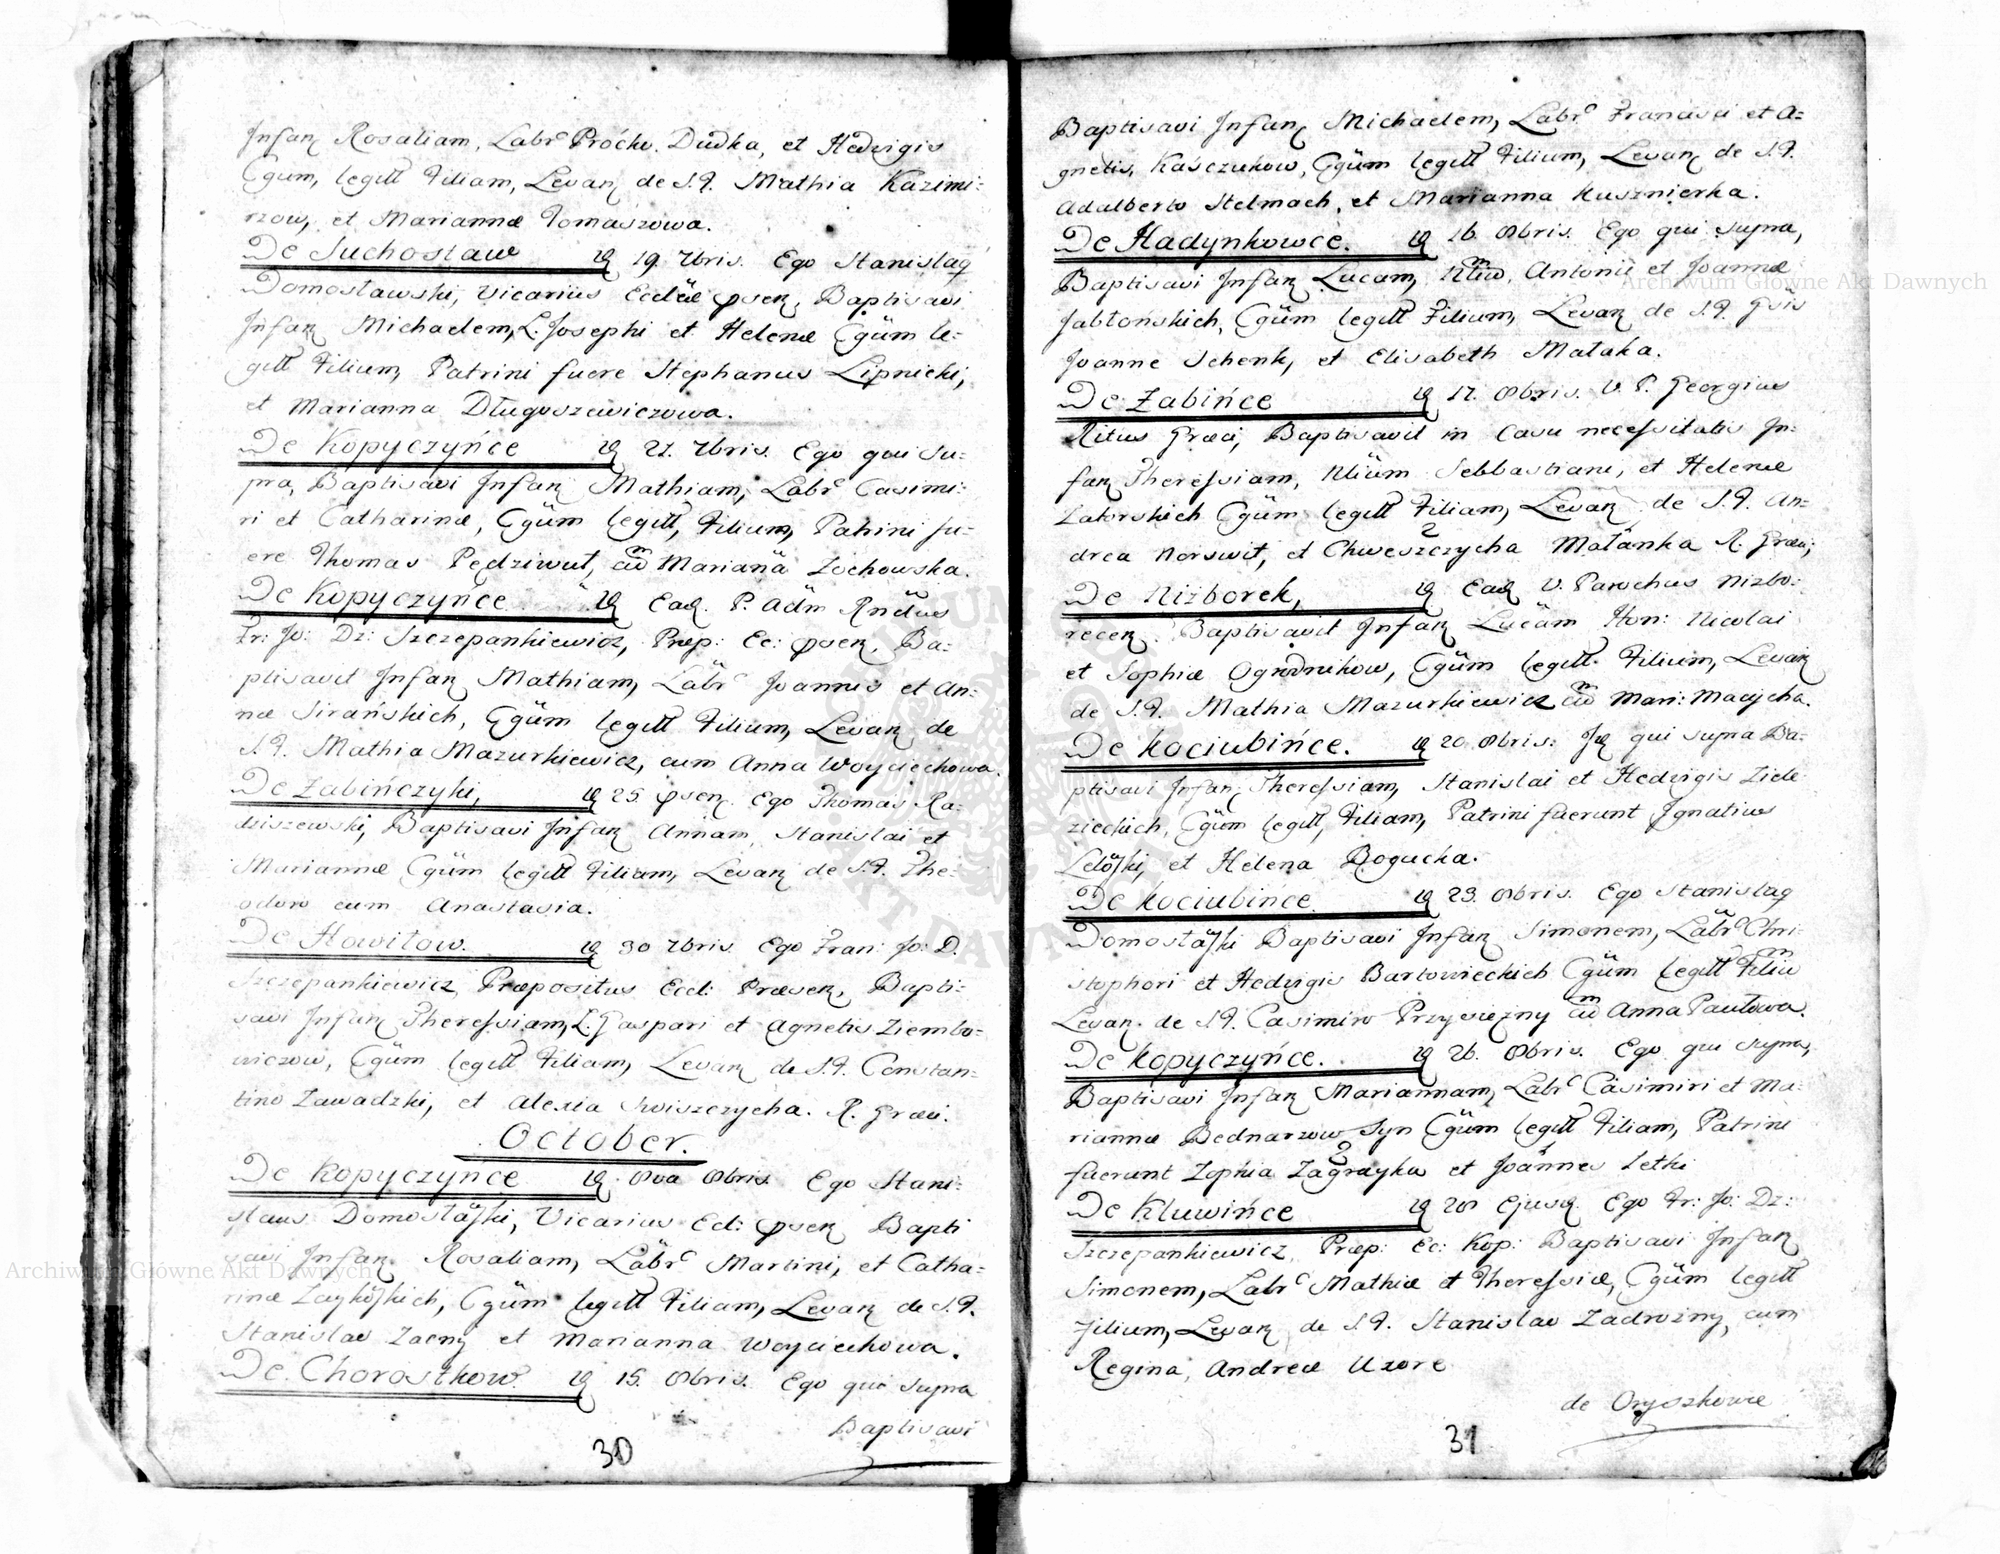 Infan Rosaliam, Labr Proćko. Dudka, et Hedvigis
Cgūm, legitt Filiam, Levan de S.F. Mathia Kazimi-
rzow, et Mariannæ Tomaszowa.
De Suchostaw 19 7bris. Ego Stanislaq
Domosławski, Vicarius Ecclæ psen, Baptisavi
Infan Michaelem, L. Josephi et Helenæ Cgūm le-
gitt Filium, Patrini fuere Stephanus Lipnicki,
et Marianna Długoszewiczowa.
De Kopyczyńce 21. 7bris. Ego qui su-
pra, Baptisavi Infan Mathiam, Labr Casimi-
ri et Catharinæ, Cgūm legitt, Filium, Patrini fu-
ere Thomas Pędziwut, cū Mariana Zochowska.
De Kopyczyńce Eaq. P. Adm Rndus
Fr: Jo: Dz: Szczepankiewicz, Præp: Ec: psen, Ba-
ptisavit Infan Mathiam, Labr Joannis et An-
næ Sirańskich, Cgūm legitt Filium, Levan de
S.F. Mathia Mazurkiewicz, cum Anna Woyciechowa.
De Zabińczyki, 25 psen. Ego Thomas Ra-
dziszewski, Baptisavi Infan Annam, Stanislai et
Mariannæ Cgūm legitt Filiam, Levan de S.F. The-
odoro cum Anastasia.
De Howiłow. 30 7bris. Ego Fran: Jo: D.
Szczepankiewicz, Præpositus Eccl: Præsen, Bapti-
savi Infan Theressiam, L. Gaspari et Agnetis Ziembo-
wiczow, Cgūm legitt Filiam, Levan de S.F. Constan-
tino Zawadzki, et Alexia Swiszczycha. R. Græci.
October.
De Kopyczyńce 8va 8bris. Ego Stani-
slaus Domosłaski, Vicarius Ecl: psen Bapti
savi Infan Rosaliam, Labr Martini, et Catha-
rinæ Cgūm legitt Filiam, Levan de S.F.
Stanislao Zacny et Marianna Woyciechowa.
De Chorostkow. 15. 8bris. Ego qui supra
Baptisavi
30
Baptisavi Infan Michaelem, Labr Francisci et A-
gnetis, Kasczukow, Cgūm legitt Filium, Levan de S.F.
Adalberto Stelmach, et Marianna Kusznierka.
De Hadynkowce. 16. 8bris. Ego qui supra,
Baptisavi Infan Lucam, Antonii et Joannæ
Jabłońskich, Cgūm legitt Filium, Levan de S.F. Gsis
Joanne Schenk, et Elisabeth Mataka.
De Zabińce 17. 8bris. V. P. Georgius
Ritus Græci, Baptisavit in Casu necessitatis In-
fan Theressiam, Sebbastiani, et Helenæ
Zatorskich Cgūm legitt Filiam, Levan de S.F. An-
drea Norswit, et Chweszczycha Małanka R. Græci;
De Niżborek, Eaq V. Parochus Nizbo-
recen. Baptisavit Infan Lucam Hon: Nicolai
et Sophiæ Ogrodnikow, Cgūm legitt. Filium, Levan
de S.F. Mathia Mazurkiewicz cū Mari: Macycha.
De Kociubińce. 20. 8bris. Iq qui supra Ba-
ptisavi Infan Theressiam, Stanislai et Hedvigis Ziele-
zieckich, Cgūm legitt, Filiam, Patrini fuerunt Ignatius
et Helena Bogucka.
De Kociubińce. 23. 8bris. Ego Stanislaq
Domosłaski Baptisavi Infan Simonem, Labr Chri-
stophori et Hedvigis Bartowieckich Cgūm legitt Filiū
Levan. de S.F. Casimiro Przysiezny cū Anna Pawłowa.
De Kopyczyńce. 26. 8bris. Ego qui supra,
Baptisavi Infan Mariannam, Labr Casimiri et Ma-
riannæ Bednarzow Syn Cgūm legitt Filiam, Patrini
fuerunt Zophia Zagrayka et Joannes Letki
De Kluwińce 28 Ejusq. Ego Fr: Jo: Dz:
Szczepankiewicz, Præp: Ec: Kop: Baptisavi Infan
Simonem, Labr Mathiæ et Theressiæ, Cgūm legitt
Filium, Levan de S.F. Stanislao Zadrożny, cum
Regina, Andreæ Uxore
de Oryszkowce
31
Archiwum Główne Akt Dawnych
Archiwum Główne Akt Dawnych